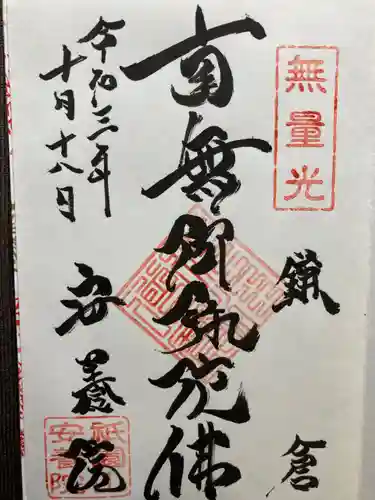 無量光
鎌倉
南無阿弥陀佛
令和三年
十月十八日
安養院
祇園
安養院